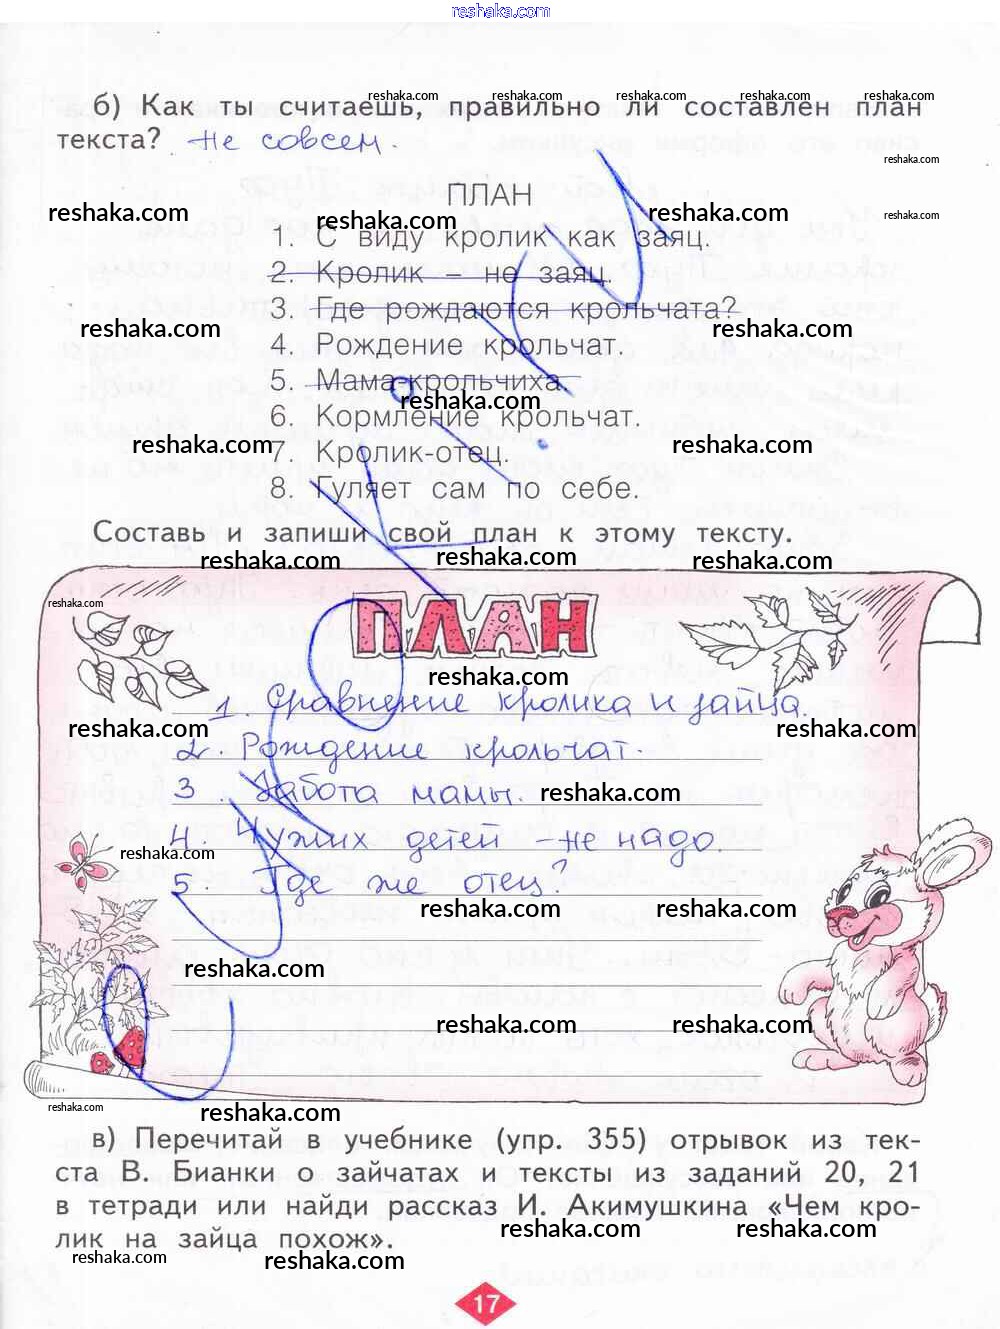 reshaka.com
б) Как ты считаешь, правильно ли составлен план
текста? Не совсем.
ПЛАН
1. С виду кролик как заяц.
2. Кролик – не заяц.
3. Где рождаются крольчата?
4. Рождение крольчат.
5. Мама-крольчиха.
6. Кормление крольчат.
7. Кролик-отец.
8. Гуляет сам по себе.
Составь и запиши свой план к этому тексту.
ПЛАН
1. Сравнение кролика и зайца.
2. Рождение крольчат.
3. Забота мамы.
4. Чужих детей – не надо.
5. Где же отец?
в) Перечитай в учебнике (упр. 355) отрывок из тек-
ста В. Бианки о зайчатах и тексты из заданий 20, 21
в тетради или найди рассказ И. Акимушкина «Чем кро-
лик на зайца похож».
17